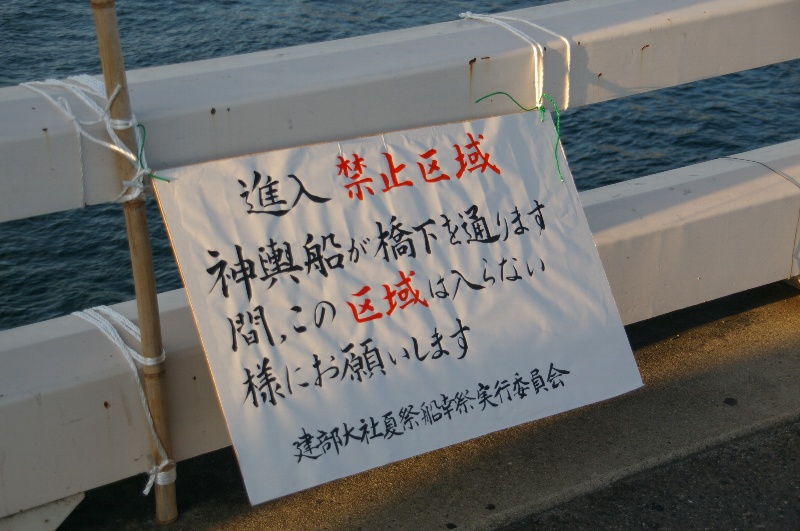 進入 禁止区域
神輿船が橋下を通ります
間、この 区域は入らない
様にお願いします
建部大社夏祭船幸祭実行委員会